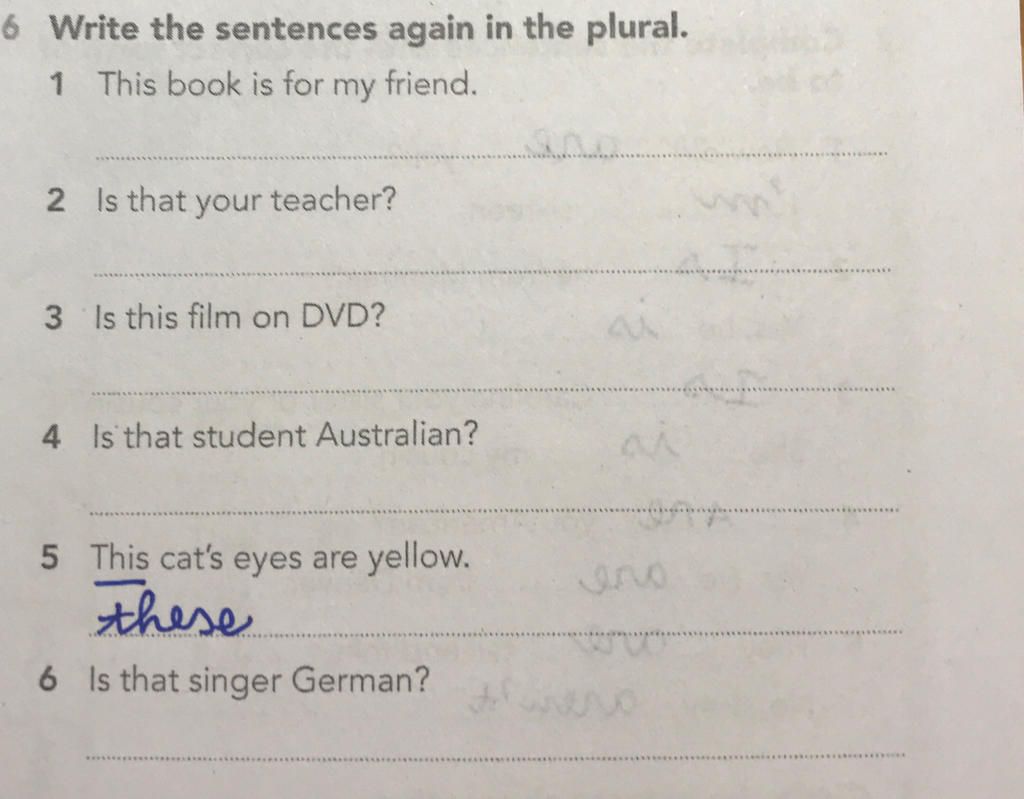 6 Write the sentences again in the plural.
1 This book is for my friend.
2 Is that your teacher?
3 Is this film on DVD?
4 Is that student Australian?
5 This cat's eyes are yellow.
these
6 Is that singer German?